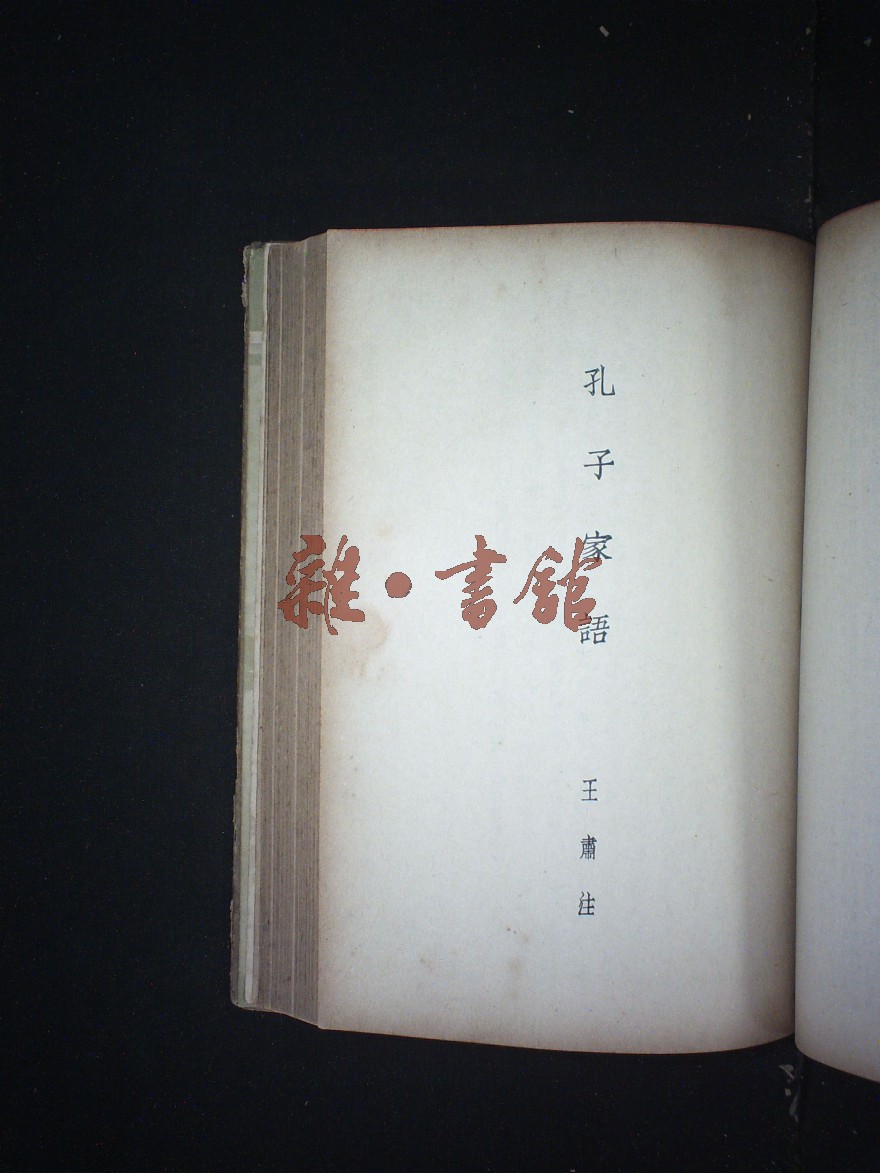 孔子家語
王肅注
雜·書館